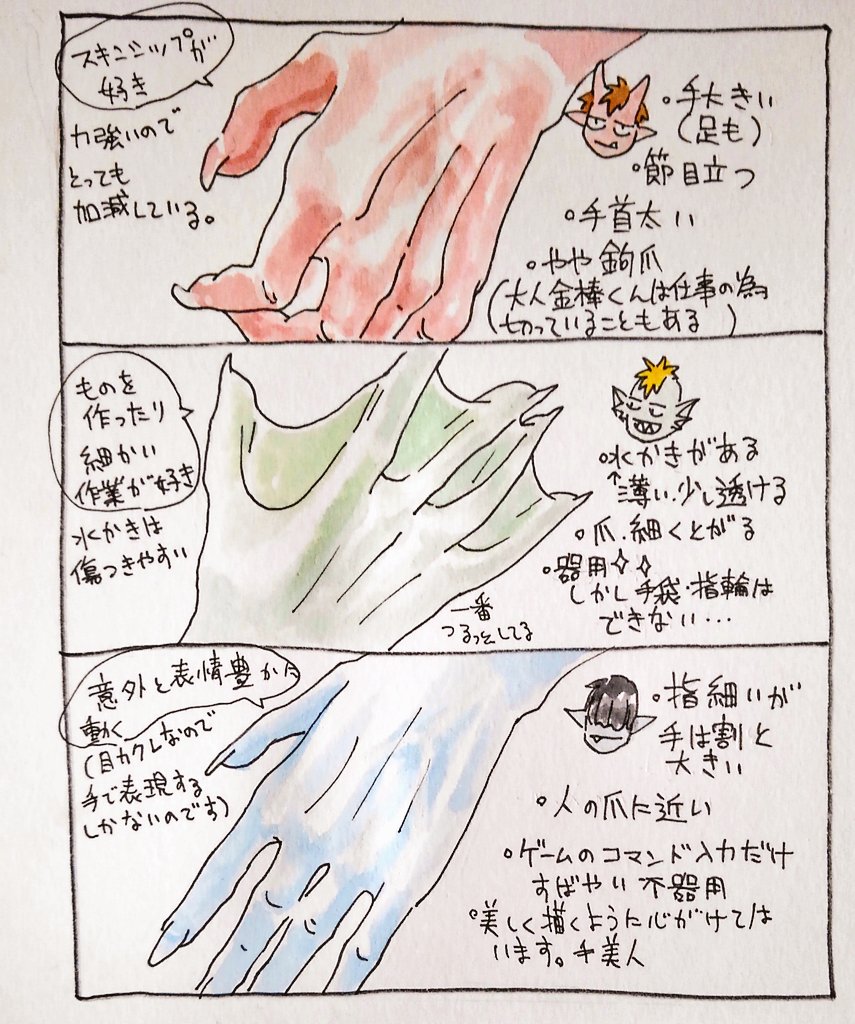 スキンシップが
好き
力強いので
とっても
加減している。
・手大きい
(足も)
・節目立つ
・手首太い
・やや鉤爪
(大人金棒くんは仕事の為
切っていることもある )
ものを
作ったり
細かい
作業が好き
水かきは
傷つきやすい
・水かきがある
↑薄い、少し透ける
・爪、細くとがる
・器用✧✧
しかし手袋・指輪は
できない…
一番
つるっとしてる
意外と表情豊かに
動く
(目カクレなので
手で表現する
しかないのです)
・指細いが
手は割と
大きい
・人の爪に近い
・ゲームのコマンド入力だけ
すばやい不器用
・美しく描くように心がけては
います。手美人